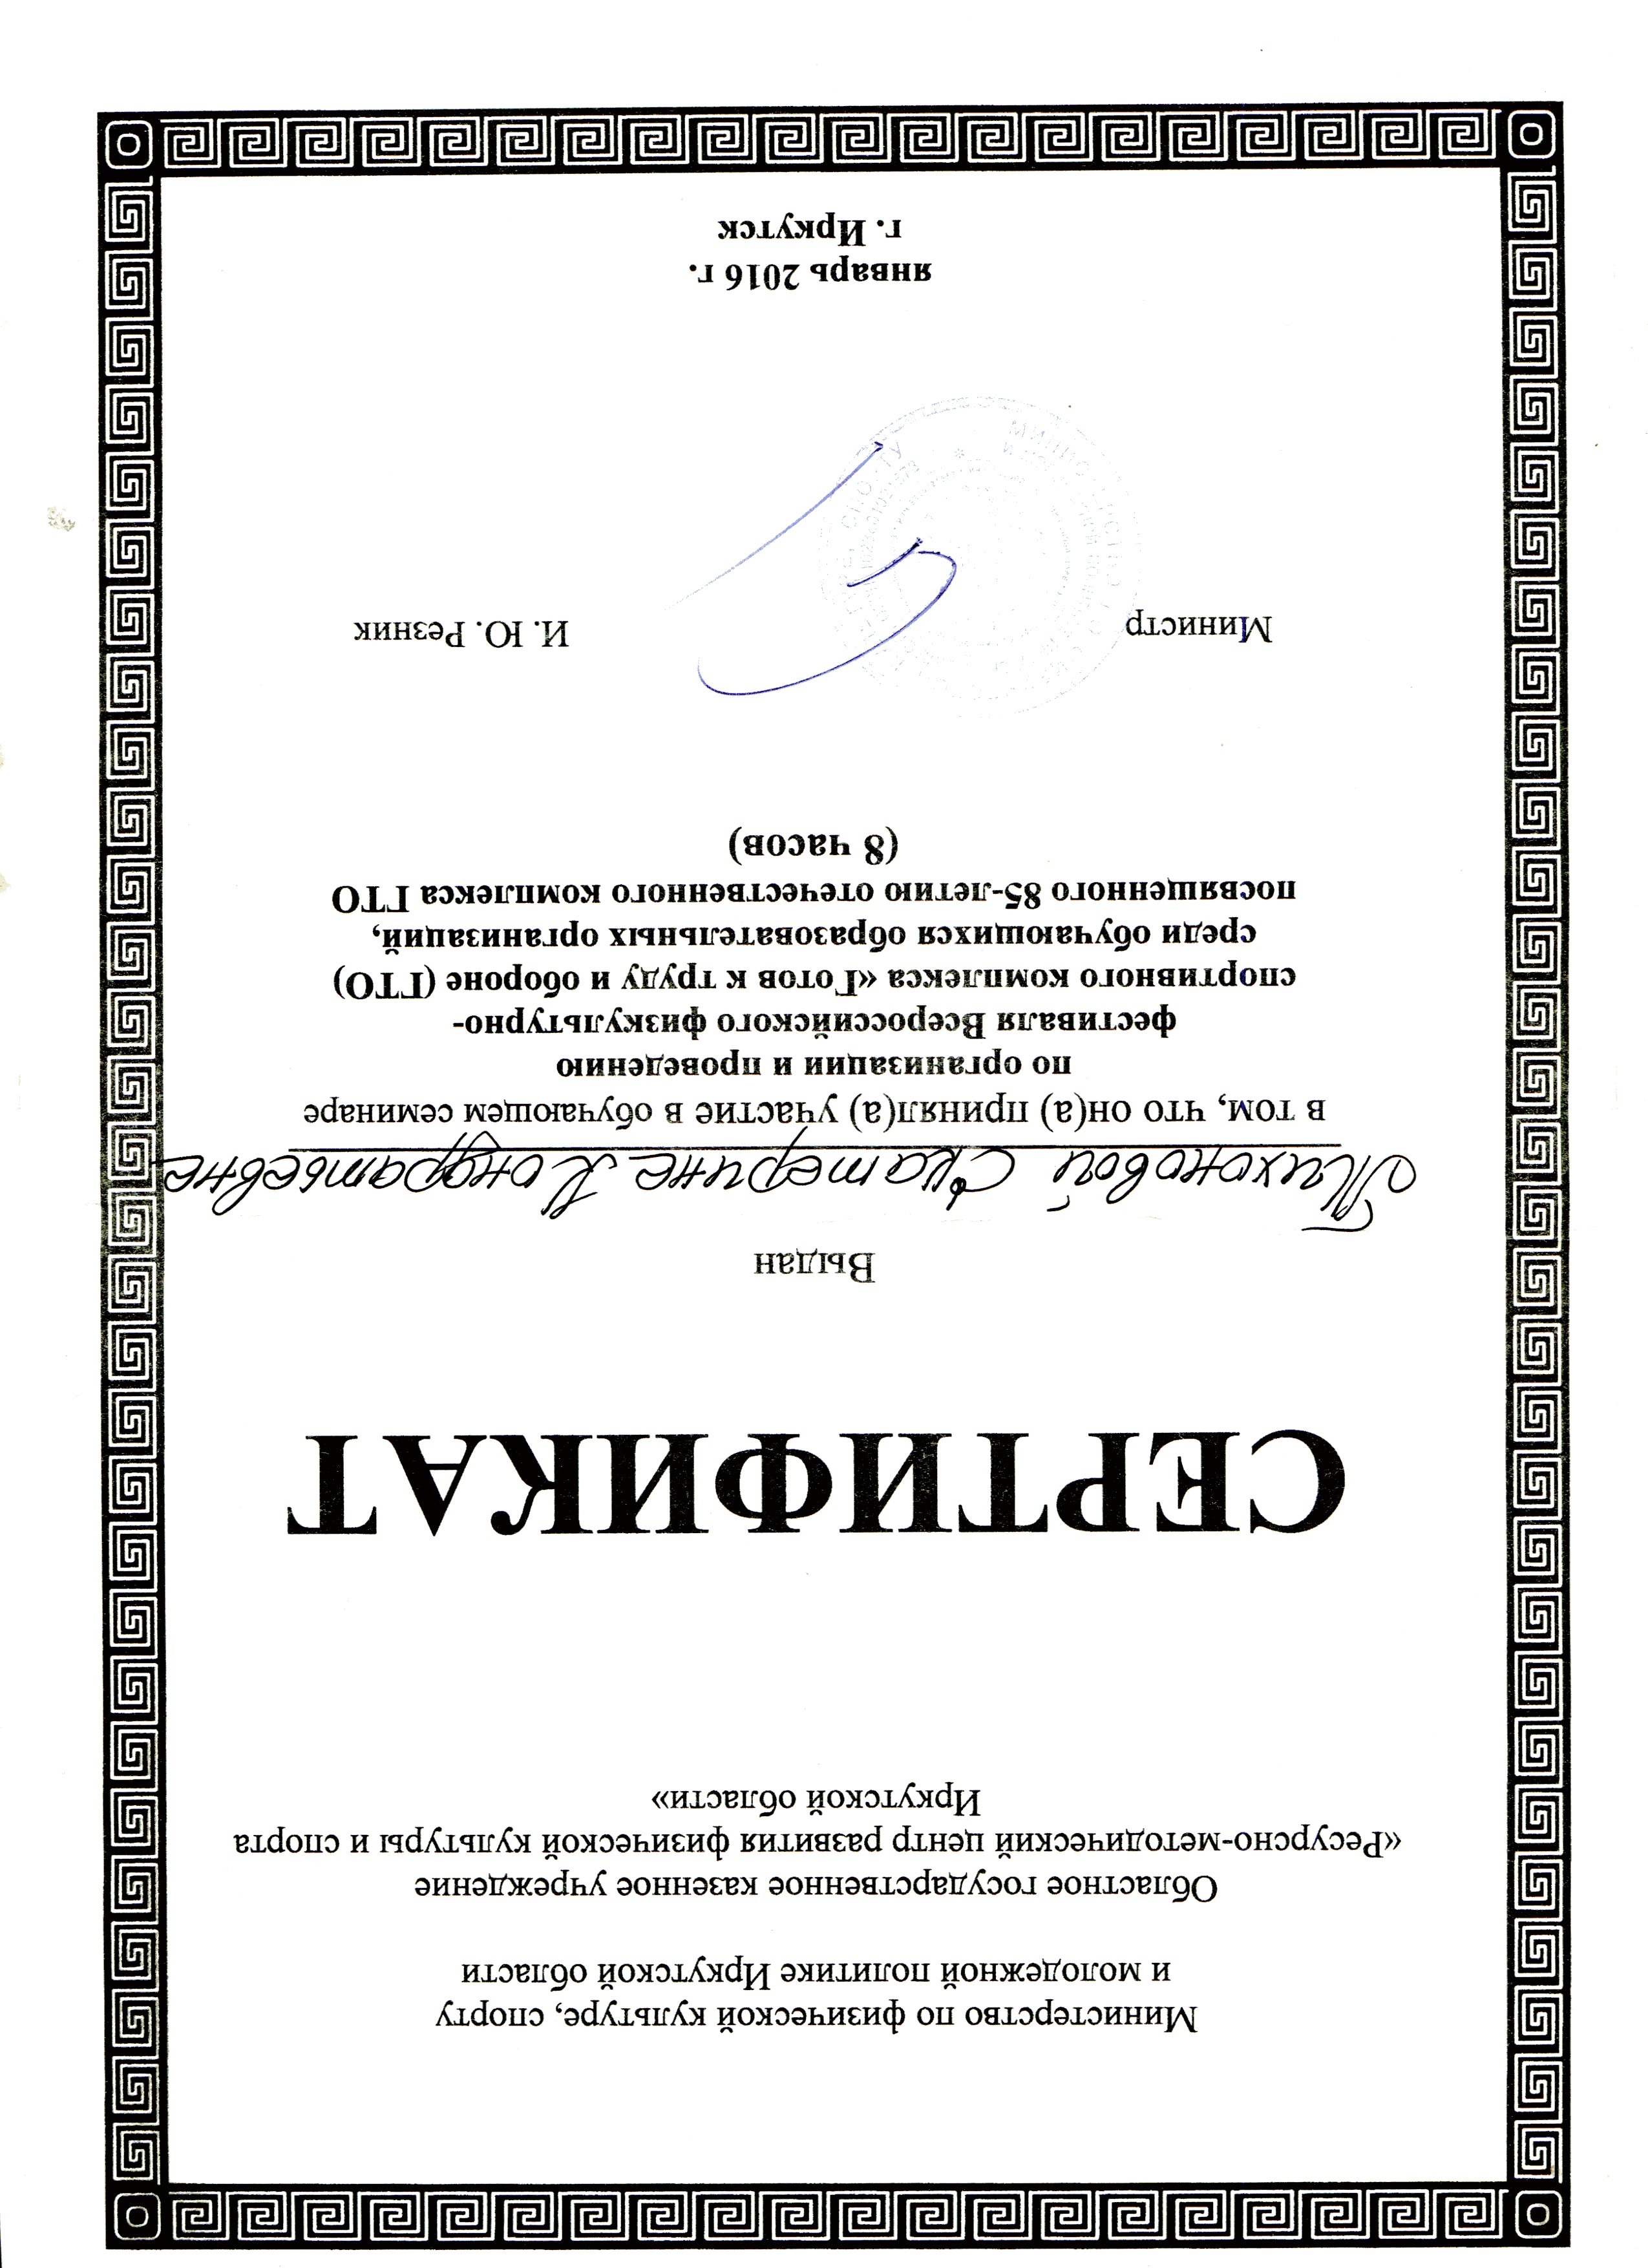 Министерство по физической культуре, спорту
и молодежной политике Иркутской области
Областное государственное казенное учреждение
«Ресурсно-методический центр развития физической культуры и спорта
Иркутской области»
СЕРТИФИКАТ
Выдан
Тихоновой Екатерине Кондратьевне
в том, что он(а) принял(а) участие в обучающем семинаре
по организации и проведению
фестиваля Всероссийского физкультурно-
спортивного комплекса «Готов к труду и обороне (ГТО)
среди обучающихся образовательных организаций,
посвященного 85-летию отечественного комплекса ГТО
(8 часов)
Министр
И. Ю. Резник
январь 2016 г.
г. Иркутск